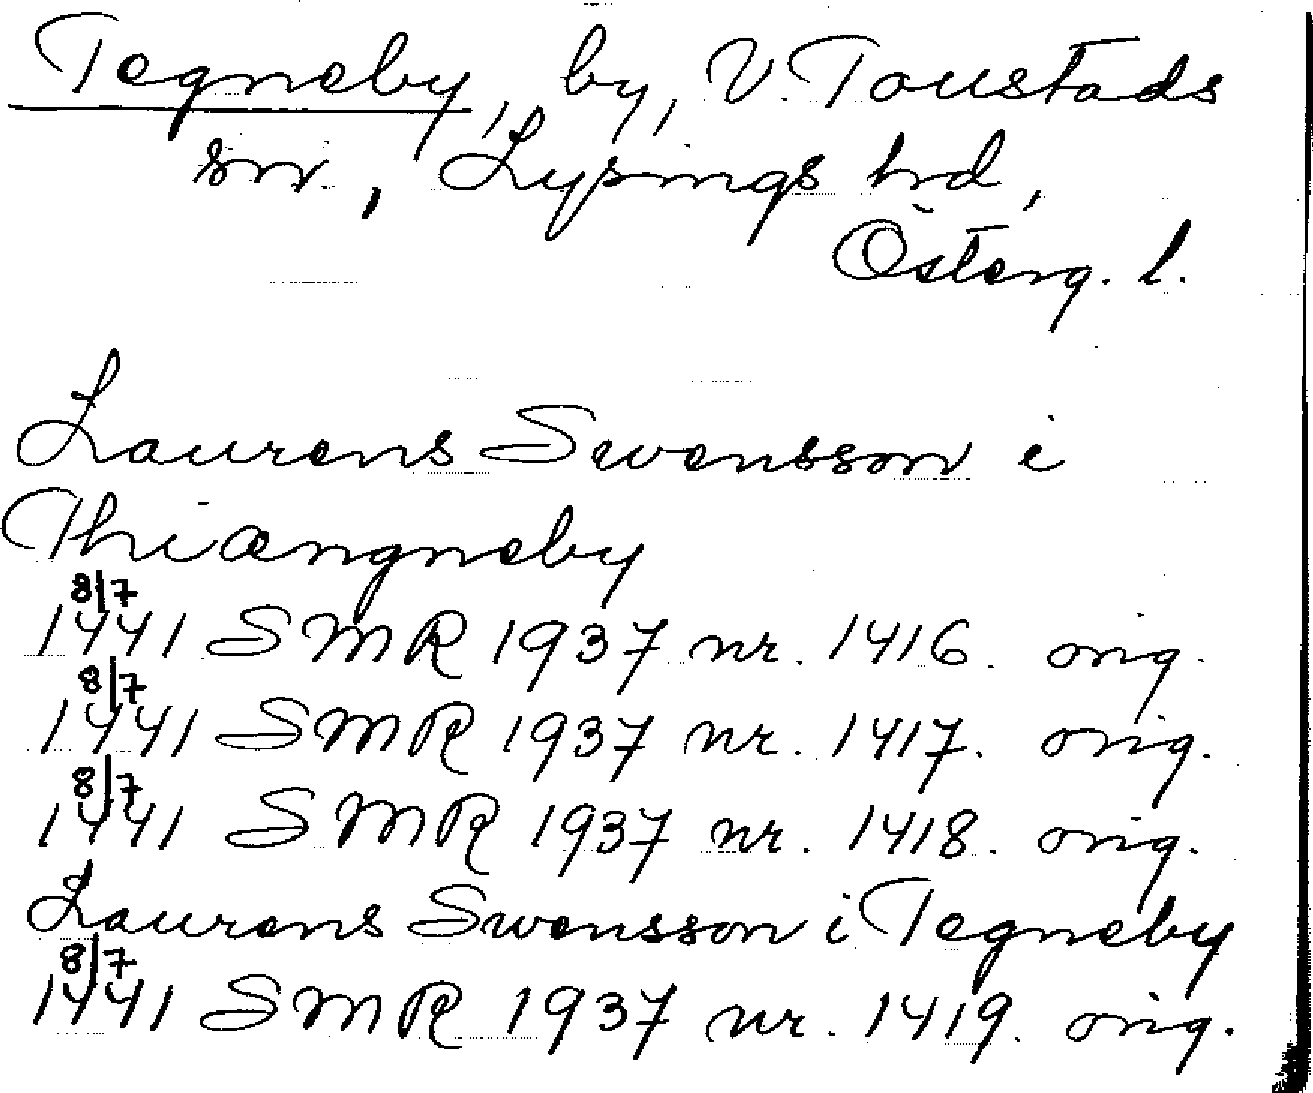 Tegneby, by, V. Toustads
sn., Lysings hrd,
Österg. l.
Laurens Swensson i
Thiængneby
8/7
1441 SMR 1937 nr. 1416. orig.
8/7
1441 SMR 1937 nr. 1417. orig.
8/7
1441 SMR 1937 nr. 1418. orig.
Laurens Swensson i Tegneby
8/7
1441 SMR 1937 nr. 1419. orig.